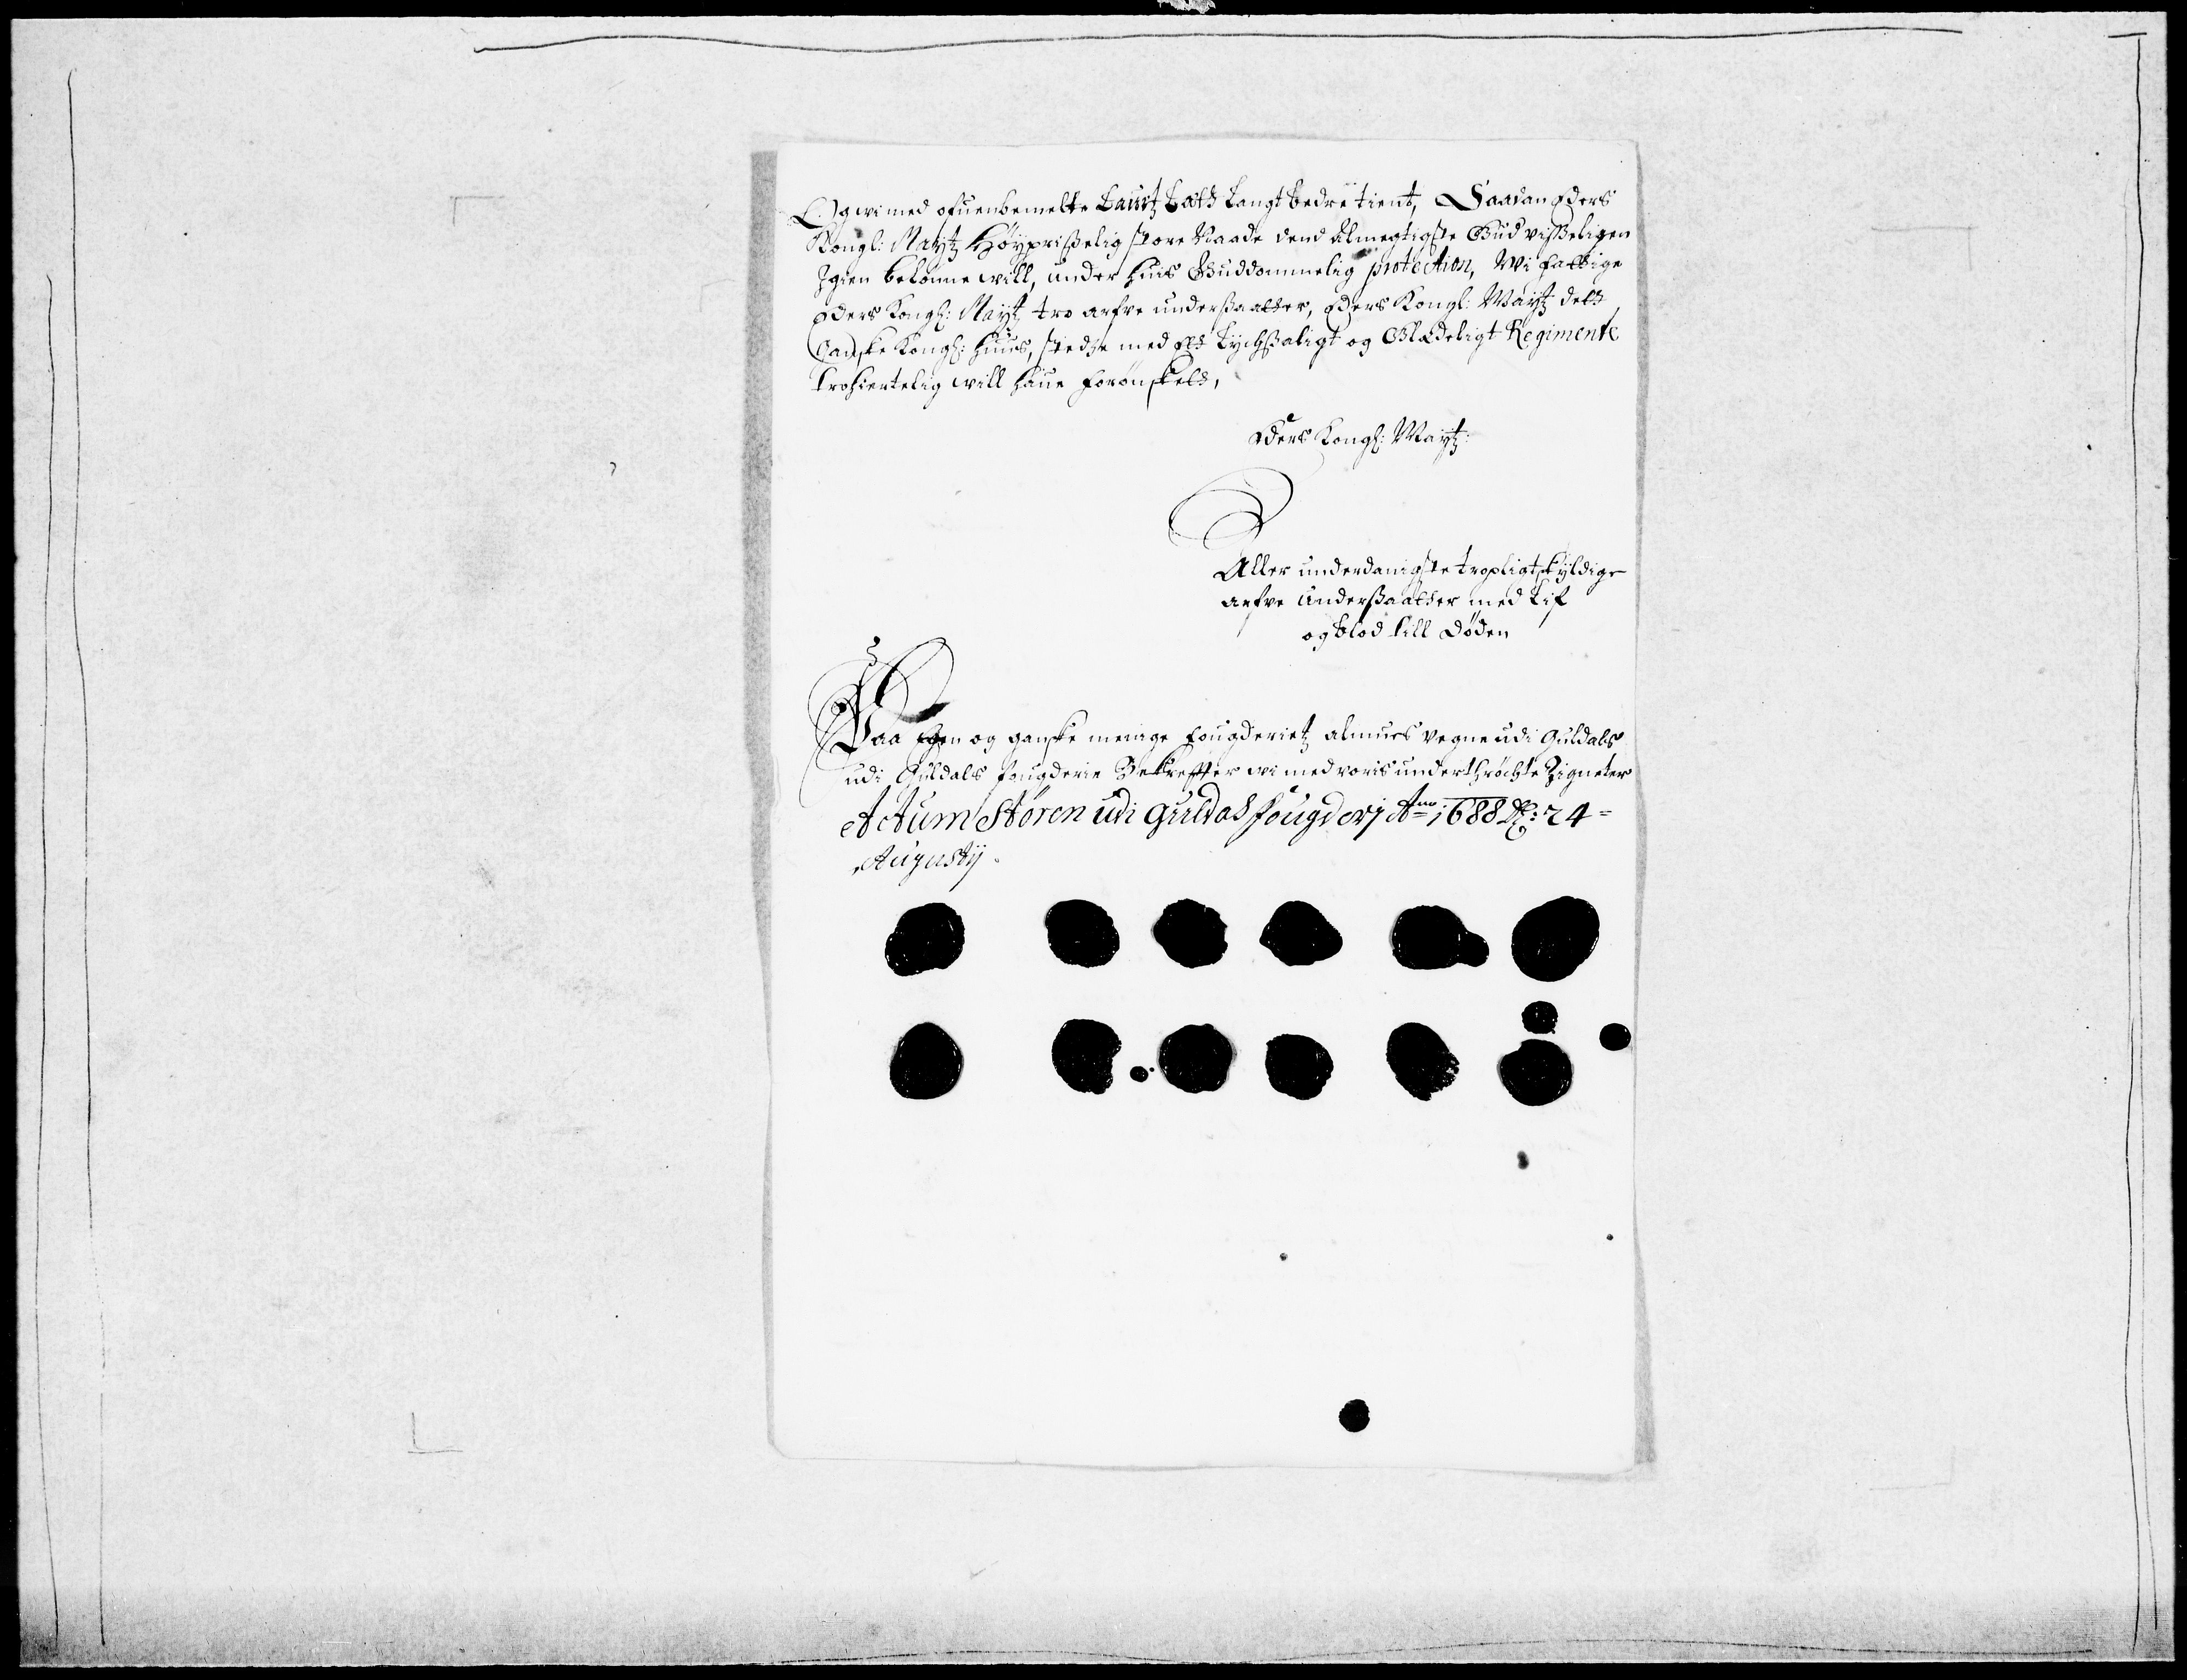 Og wi med ofuenbemelte Lauritz Bath Langt bedre tient, Saadan Eders
Kongl: Maytz Høyprißelig store Naade dend Almegtigste Gud visßeligen
Igien belønne will, under huis Guddommelig protection, Wi fattige
Eders Kongl: Maytz tro arfve underßaatter, Eders Kongl: Maytz dets
Ganske Kongl: huus, stedse med Et Lychsaligt og Glædeligt Regimente
trohiertelig will haue forønsket,
Eders Kongl: Maytz:
Aller underdanigste tropligtskyldige
arfve underßaatter med Lif
og blod till Døden
Paa Egen og ganske menige fougderietz almues vegne udi Guldals
udi Guldals fougderie Bekreffter wi med voris underthrøchte Zigneter
Actum Støren udi Guldals fougderj Ano 1688 D: 24
Augustij